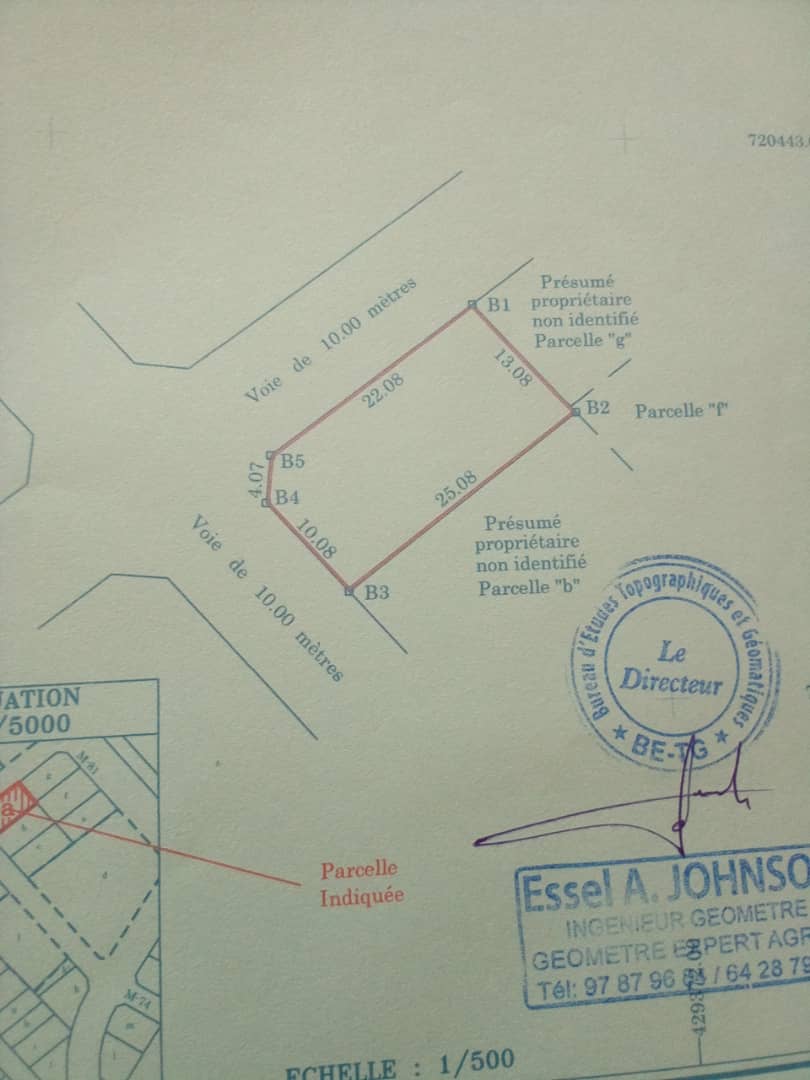 720443.
Voie de 10.00 mètres
B1
Présumé
propriétaire
non identifié
Parcelle "g"
13.08
22.08
B2
Parcelle "f"
B5
4.07
B4
25.08
10.08
B3
Voie de 10.00 mètres
Présumé
propriétaire
non identifié
Parcelle "b"
Bureau d'Etudes Topographiques et Géomatiques
Le
Directeur
★ BE-TG ★
UATION
/5000
M-81
a
d
Parcelle
Indiquée
M-74
Essel A. JOHNSO
INGENIEUR GEOMETRE
GEOMETRE EXPERT AGR
Tél: 97 87 96 / 64 28 79
ECHELLE : 1/500